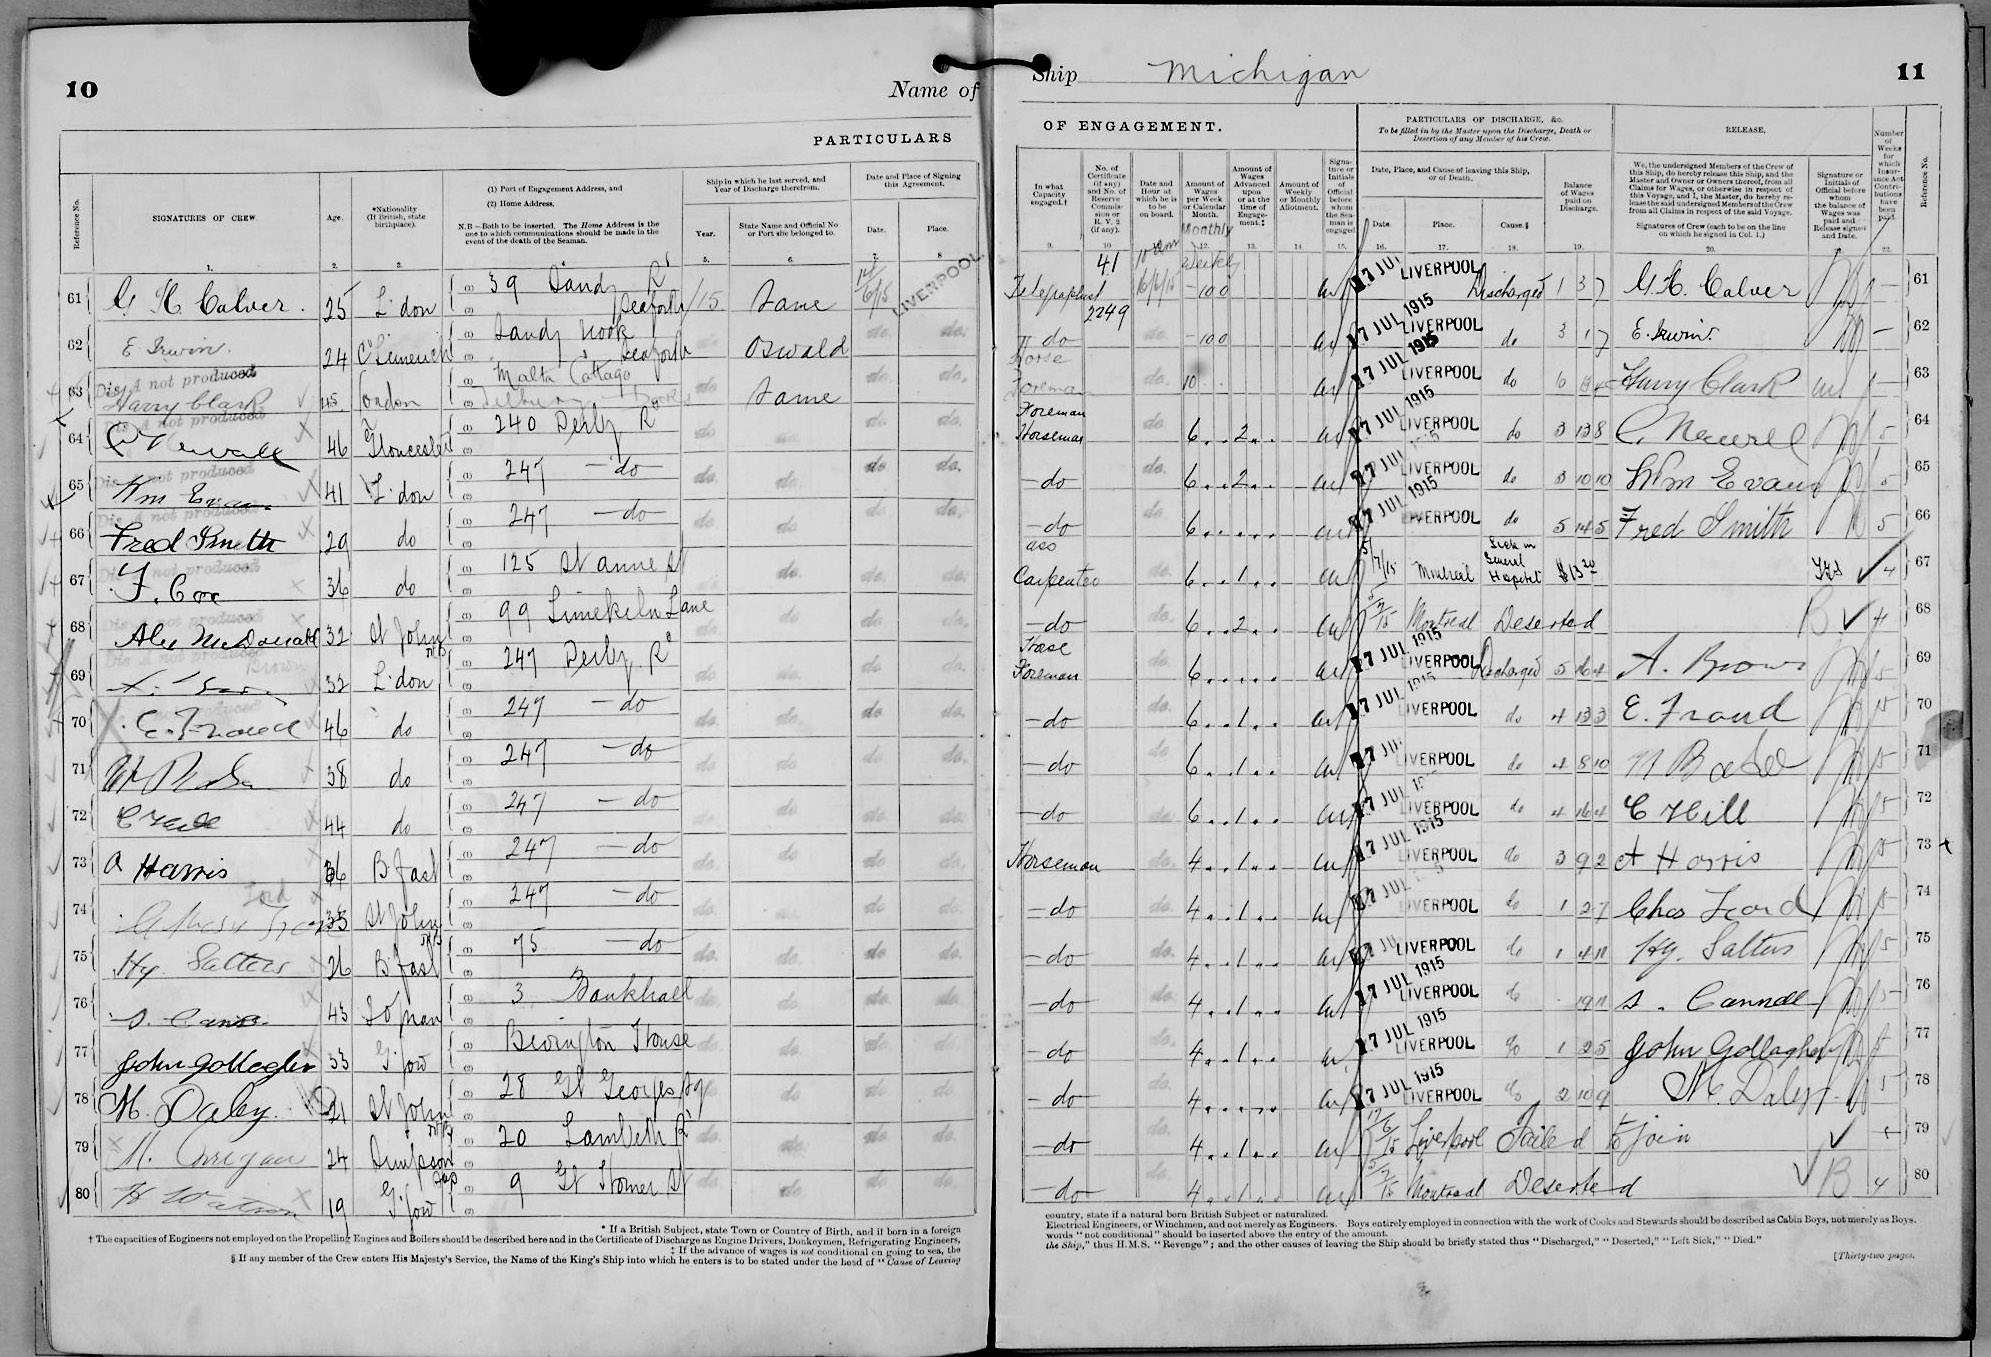 10
Name of
PARTICULARS
Reference No.
SIGNATURES OF CREW
Age.
*Nationality (If British, state birthplace).
(1) Port of Engagement Address, and
(2) Home Address.
N.B.—Both to be inserted. The Home Address is the one to which communications should be made in the event of the death of the Seaman.
Ship in which he last served, and Year of Discharge therefrom.
Year.
State Name and Official No or Port she belonged to.
Date and Place of Signing this Agreement.
Date.
Place.
1. 2. 3. 4. 5. 6. 7. 8
61 G H Calver. 25 L'don 39 Sandy Rd Seaforth /15 Same 14/6/15 LIVERPOOL
62 E. Irwin. 24 Co Limerick Sandy Nook Seaforth do Oswald do. do.
63 Dis. A not produced Harry Clark 45 London Malta Cottage do Same do. do.
64 Dis. A not produced 46 Gloucester 240 Derby Rd do do. do. do.
65 Dis. A not produced Wm Evans 41 L'don 247 —do do. do. do do.
66 Dis. A not produced Fred Smith 29 do 247 —do— do do. do do.
67 Dis. A not produced F. Cox 36 do 125 St Anne St do. do do.
68 Dis. A not produced Alex McDonald 32 St John NB 99 Limekiln Lane do. do do do.
69 Dis. A not produced Brown 32 L'don 247 Derby Rd do do. do do.
70 E. Froud 46 do 247 —do do do. do do.
71 38 do 247 —do do do. do do.
72 C Hill 44 do 247 —do do do. do. do.
73 A Harris 36 B'fast 247 —do do. do do. do.
74 Ford 35 St John NB 247 —do do do do do
75 Hy. Salters 26 B'fast 75 —do do. do. do do.
76 43 3 Bankhall do do. do do.
77 John Gollogher 33 G'gow Bevington House do do. do do.
78 M. Daley 21 St John 28 Gt Georges Sq do do do do
79 M. Corrigan 24 20 Lambeth Rd do. do. do do.
80 H Watson 19 G'gow 9 Gt Homer St do. do do. do.
* If a British Subject, state Town or Country of Birth, and if born in a foreign
† The capacities of Engineers not employed on the Propelling Engines and Boilers should be described here and in the Certificate of Discharge as Engine Drivers, Donkeymen, Refrigerating Engineers,
‡ If the advance of wages is not conditional on going to sea, the
§ If any member of the Crew enters His Majesty's Service, the Name of the King's Ship into which he enters is to be stated under the head of "Cause of Leaving
Ship Michigan
11
OF ENGAGEMENT.
PARTICULARS OF DISCHARGE, &c.
To be filled in by the Master upon the Discharge, Death or Desertion of any Member of his Crew.
RELEASE.
In what Capacity engaged.†
No. of Certificate (if any) and No. of Reserve Commission or R. V. 2 (if any).
Date and Hour at which he is to be on board.
Amount of Wages per Week or Calendar Month.
Monthly
Amount of Wages Advanced upon or at the time of Engagement.‡
Amount of Weekly or Monthly Allotment.
Signature or Initials of Official before whom the Seaman is engaged
Date, Place, and Cause of leaving this Ship, or of Death.
Date.
Place.
Cause.§
Balance of Wages paid on Discharge.
We, the undersigned Members of the Crew of this Ship, do hereby release this Ship, and the Master and Owner or Owners thereof, from all Claims for Wages, or otherwise in respect of this Voyage, and I, the Master, do hereby release the said undersigned Members of the Crew from all Claims in respect of the said Voyage.
Signatures of Crew (each to be on the line on which he signed in Col. 1.)
Signature or Initials of Official before whom the balance of Wages was paid and Release signed and Date.
Number of Weeks for which Insurance Act Contributions have been paid.
Reference No.
9. 10 11 12. 13. 14. 15. 16. 17. 18. 19. 20. 22.
Telegraphist 41 2249 10 am 16/6/15 Weekly -100 17 JUL 1915 LIVERPOOL Discharged 1 3 7 G. H. Calver — 61
do -100 17 JUL 1915 LIVERPOOL do 3 1 7 E. Irwin. — 62
Horse Foreman do. 10 17 JUL 1915 LIVERPOOL do Harry Clark — 63
Foreman Horseman do. 6 2 17 JUL 1915 LIVERPOOL do 3 13 8 C. Newell 5 64
—do do. 6 2 17 JUL 1915 LIVERPOOL do 3 10 10 Wm Evans 5 65
—do do. 6 17 JUL LIVERPOOL do 5 14 5 Fred Smith 5 66
ass Carpenter do. 6 1 5/7/15 Montreal Sick in General Hospital $13.20 4 67
—do do. 6 2 5/7/15 Montreal Deserted B 4 68
Horse Foreman do. 6 17 JUL 1915 LIVERPOOL Discharged 5 16 4 A. Brown 5 69
—do do. 6 1 17 JUL 1915 LIVERPOOL do 4 13 3 E. Froud 5 70
—do do 6 1 17 JUL LIVERPOOL do 4 8 10 5 71
—do do. 6 1 17 JUL LIVERPOOL do 4 16 4 C Hill 5 72
Horseman do. 4 1 17 JUL 1915 LIVERPOOL do 3 9 2 A Harris 5 73
—do do. 4 1 17 JUL LIVERPOOL do 1 2 7 Chas Foord 5 74
—do do. 4 1 LIVERPOOL do 1 4 11 Hy. Salters 5 75
—do do. 4 1 17 JUL 1915 LIVERPOOL do 19 11 5 76
—do do. 4 1 17 JUL 1915 LIVERPOOL do 1 2 5 John Gollagher 5 77
—do do. 4 17 JUL 1915 LIVERPOOL do 2 10 9 M. Daley 5 78
—do do. 4 1 17/6/15 Liverpool Failed to join 79
—do do. 4 1 5/7/15 Montreal Deserted B 4 80
country, state if a natural born British Subject or naturalized.
Electrical Engineers, or Winchmen, and not merely as Engineers. Boys entirely employed in connection with the work of Cooks and Stewards should be described as Cabin Boys, not merely as Boys.
words "not conditional" should be inserted above the entry of the amount.
the Ship," thus H.M.S. "Revenge"; and the other causes of leaving the Ship should be briefly stated thus "Discharged," "Deserted," "Left Sick," "Died."
[Thirty-two pages.